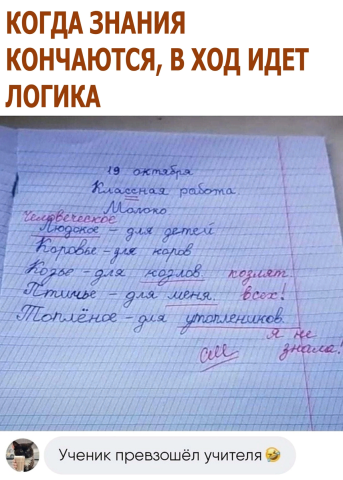 КОГДА ЗНАНИЯ
КОНЧАЮТСЯ, В ХОД ИДЕТ
ЛОГИКА
19 октября
Классная работа.
Молоко
Человеческое
Людское - для детей
Коровье - для коров
Козье - для козлов козлят
Птичье - для меня. всех!
Топлёное - для утопленников.
я не
см знала!
Ученик превзошёл учителя🤣